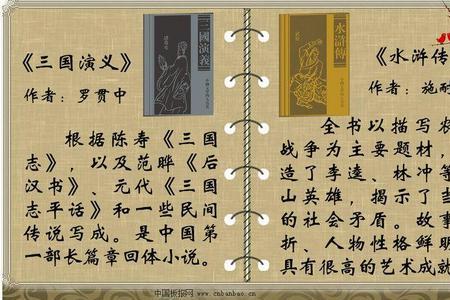 《三国演义》
作者：罗贯中
三國演義
根据陈寿《三国
志》，以及范晔《后
汉书》、元代《三国
志平话》和一些民间
传说写成。是中国第
一部长篇章回体小说。
《水浒传
作者：施耐
水滸傳
全书以描写农
战争为主要题材，
造了李逵、林冲等
山英雄，揭示了当
的社会矛盾。故事
折、人物性格鲜明
具有很高的艺术成就
中国板报网 www.cnbanbao.cn